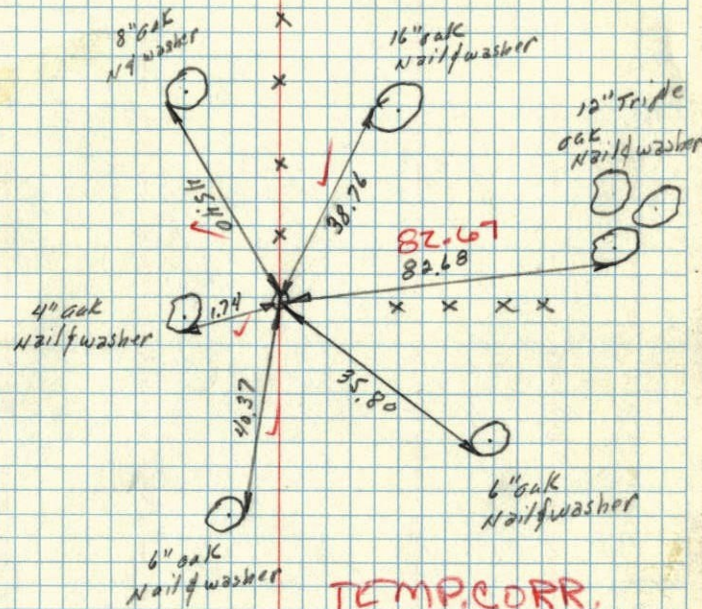 8" oak
N & washer
16" oak
Nail & washer
12" Triple
oak
Nail & washer
45.40
38.76
82.67
82.68
4" oak
Nail & washer
1.74
40.37
35.80
6" oak
Nail & washer
6" oak
Nail & washer
TEMP. CORR.